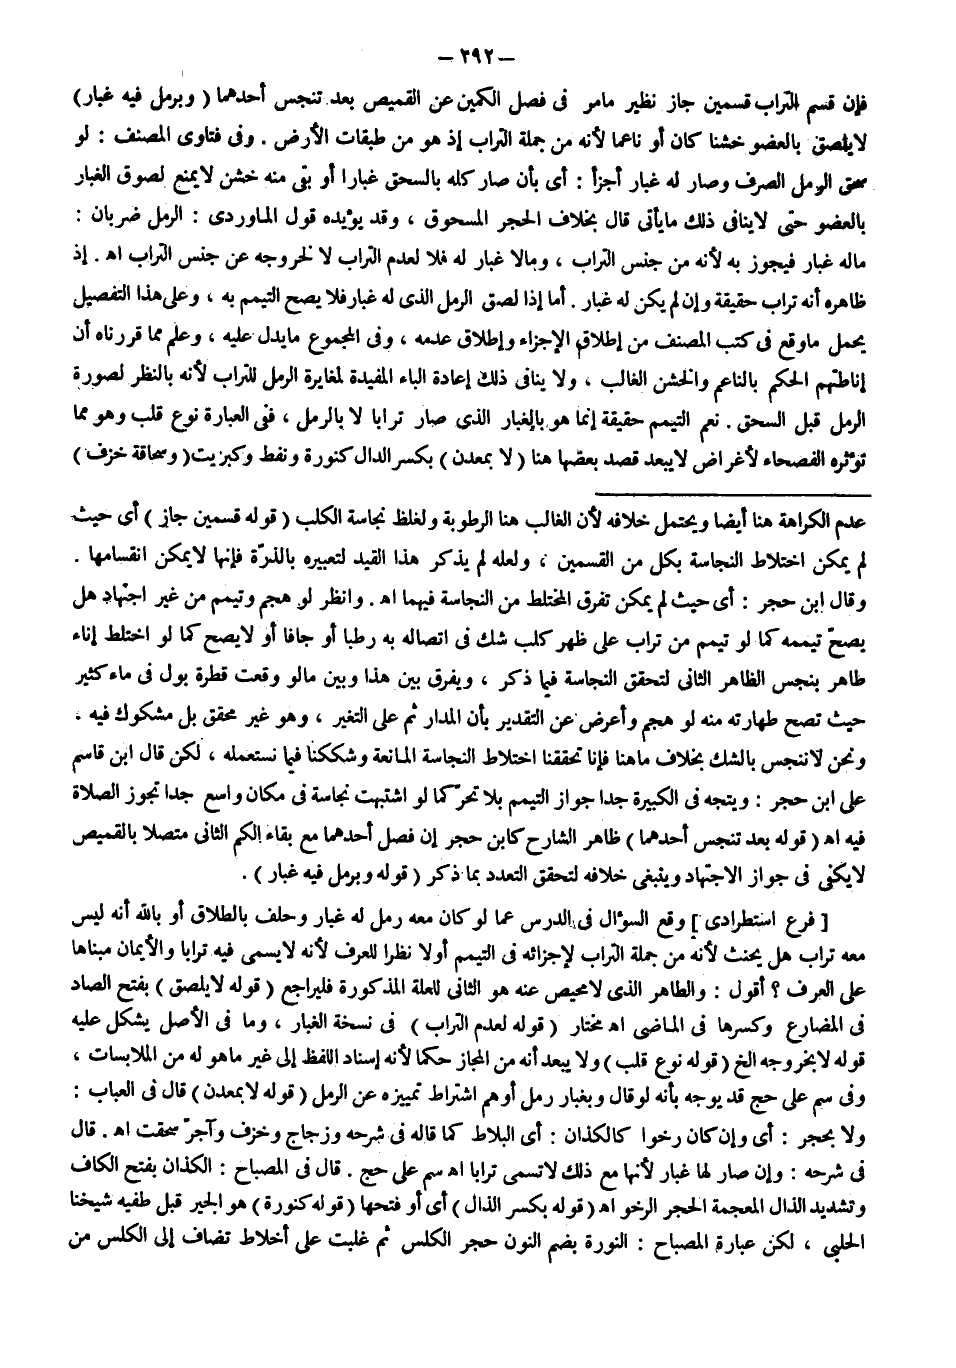 — ٢٩٢ —
فإن قسم التراب قسمين جاز نظير مامر فى فصل الكمين عن القميص بعد تنجس أحدهما ( وبرمل فيه غبار )
لايلصق بالعضو خشنا كان أو ناعما لأنه من جملة التراب إذ هو من طبقات الأرض . وفى فتاوى المصنف : لو
سحق الرمل الصرف وصار له غبار أجزأ : أى بأن صار كله بالسحق غبارا أو بقى منه خشن لايمنع لصوق الغبار
بالعضو حتى لاينافى ذلك مايأتى قال بخلاف الحجر المسحوق ، وقد يؤيده قول الماوردى : الرمل ضربان :
ماله غبار فيجوز به لأنه من جنس التراب ، ومالا غبار له فلا لعدم التراب لا لخروجه عن جنس التراب اه . إذ
ظاهره أنه تراب حقيقة وإن لم يكن له غبار . أما إذا لصق الرمل الذى له غبار فلا يصح التيمم به ، وعلى هذا التفصيل
يحمل ماوقع فى كتب المصنف من إطلاق الإجزاء وإطلاق عدمه ، وفى المجموع مايدل عليه ، وعلم مما قررناه أن
إناطتهم الحكم بالناعم والخشن الغالب ، ولا ينافى ذلك إعادة الباء المفيدة لمغايرة الرمل للتراب لأنه بالنظر لصورة
الرمل قبل السحق . نعم التيمم حقيقة إنما هو بالغبار الذى صار ترابا لا بالرمل ، ففى العبارة نوع قلب وهو مما
تؤثره الفصحاء لأغراض لايبعد قصد بعضها هنا ( لا بمعدن ) بكسر الدال كنورة ونفط وكبريت ( وسحاقة خزف )
عدم الكراهة هنا أيضا ويحتمل خلافه لأن الغالب هنا الرطوبة ولغلظ نجاسة الكلب ( قوله قسمين جاز ) أى حيث
لم يمكن اختلاط النجاسة بكل من القسمين ، ولعله لم يذكر هذا القيد لتعبيره بالذرّة فإنها لايمكن انقسامها .
وقال ابن حجر : أى حيث لم يمكن تفرق المختلط من النجاسة فيهما اه . وانظر لو هجم وتيمم من غير اجتهاد هل
يصحّ تيممه كما لو تيمم من تراب على ظهر كلب شك فى اتصاله به رطبا أو جافا أو لايصح كما لو اختلط إناء
طاهر بنجس الظاهر الثانى لتحقق النجاسة فيما ذكر ، ويفرق بين هذا وبين مالو وقعت قطرة بول فى ماء كثير
حيث تصح طهارته منه لو هجم وأعرض عن التقدير بأن المدار ثم على التغير ، وهو غير محقق بل مشكوك فيه ،
ونحن لاننجس بالشك بخلاف ماهنا فإنا تحققنا اختلاط النجاسة المانعة وشككنا فيما نستعمله ، لكن قال ابن قاسم
على ابن حجر : ويتجه فى الكبيرة جدا جواز التيمم بلا تحرّ كما لو اشتبهت نجاسة فى مكان واسع جدا تجوز الصلاة
فيه اه ( قوله بعد تنجس أحدهما ) ظاهر الشارح كابن حجر إن فصل أحدهما مع بقاء الكم الثانى متصلا بالقميص
لايكفى فى جواز الاجتهاد وينبغى خلافه لتحقق التعدد بما ذكر ( قوله وبرمل فيه غبار ) .
[ فرع استطرادى ] وقع السؤال فى الدرس عما لو كان معه رمل له غبار وحلف بالطلاق أو بالله أنه ليس
معه تراب هل يحنث لأنه من جملة التراب لإجزائه فى التيمم أولا نظرا للعرف لأنه لايسمى فيه ترابا والأيمان مبناها
على العرف ؟ أقول : والظاهر الذى لامحيص عنه هو الثانى للعلة المذكورة فليراجع ( قوله لايلصق ) بفتح الصاد
فى المضارع وكسرها فى الماضى اه مختار ( قوله لعدم التراب ) فى نسخة الغبار ، وما فى الأصل يشكل عليه
قوله لابخروجه الخ ( قوله نوع قلب ) ولا يبعد أنه من المجاز حكما لأنه إسناد اللفظ إلى غير ماهو له من الملابسات ،
وفى سم على حج قد يوجه بأنه لو قال وبغبار رمل أوهم اشتراط تمييزه عن الرمل ( قوله لابمعدن ) قال فى العباب :
ولا بحجر : أى وإن كان رخوا كالكذان : أى البلاط كما قاله فى شرحه وزجاج وخزف وآجرّ سحقت اه . قال
فى شرحه : وإن صار لها غبار لأنها مع ذلك لاتسمى ترابا اه سم على حج . قال فى المصباح : الكذان بفتح الكاف
وتشديد الذال المعجمة الحجر الرخو اه ( قوله بكسر الذال ) أى أو فتحها ( قوله كنورة ) هو الجير قبل طفيه شيخنا
الحلبى ، لكن عبارة المصباح : النورة بضم النون حجر الكلس ثم غلبت على أخلاط تضاف إلى الكلس من